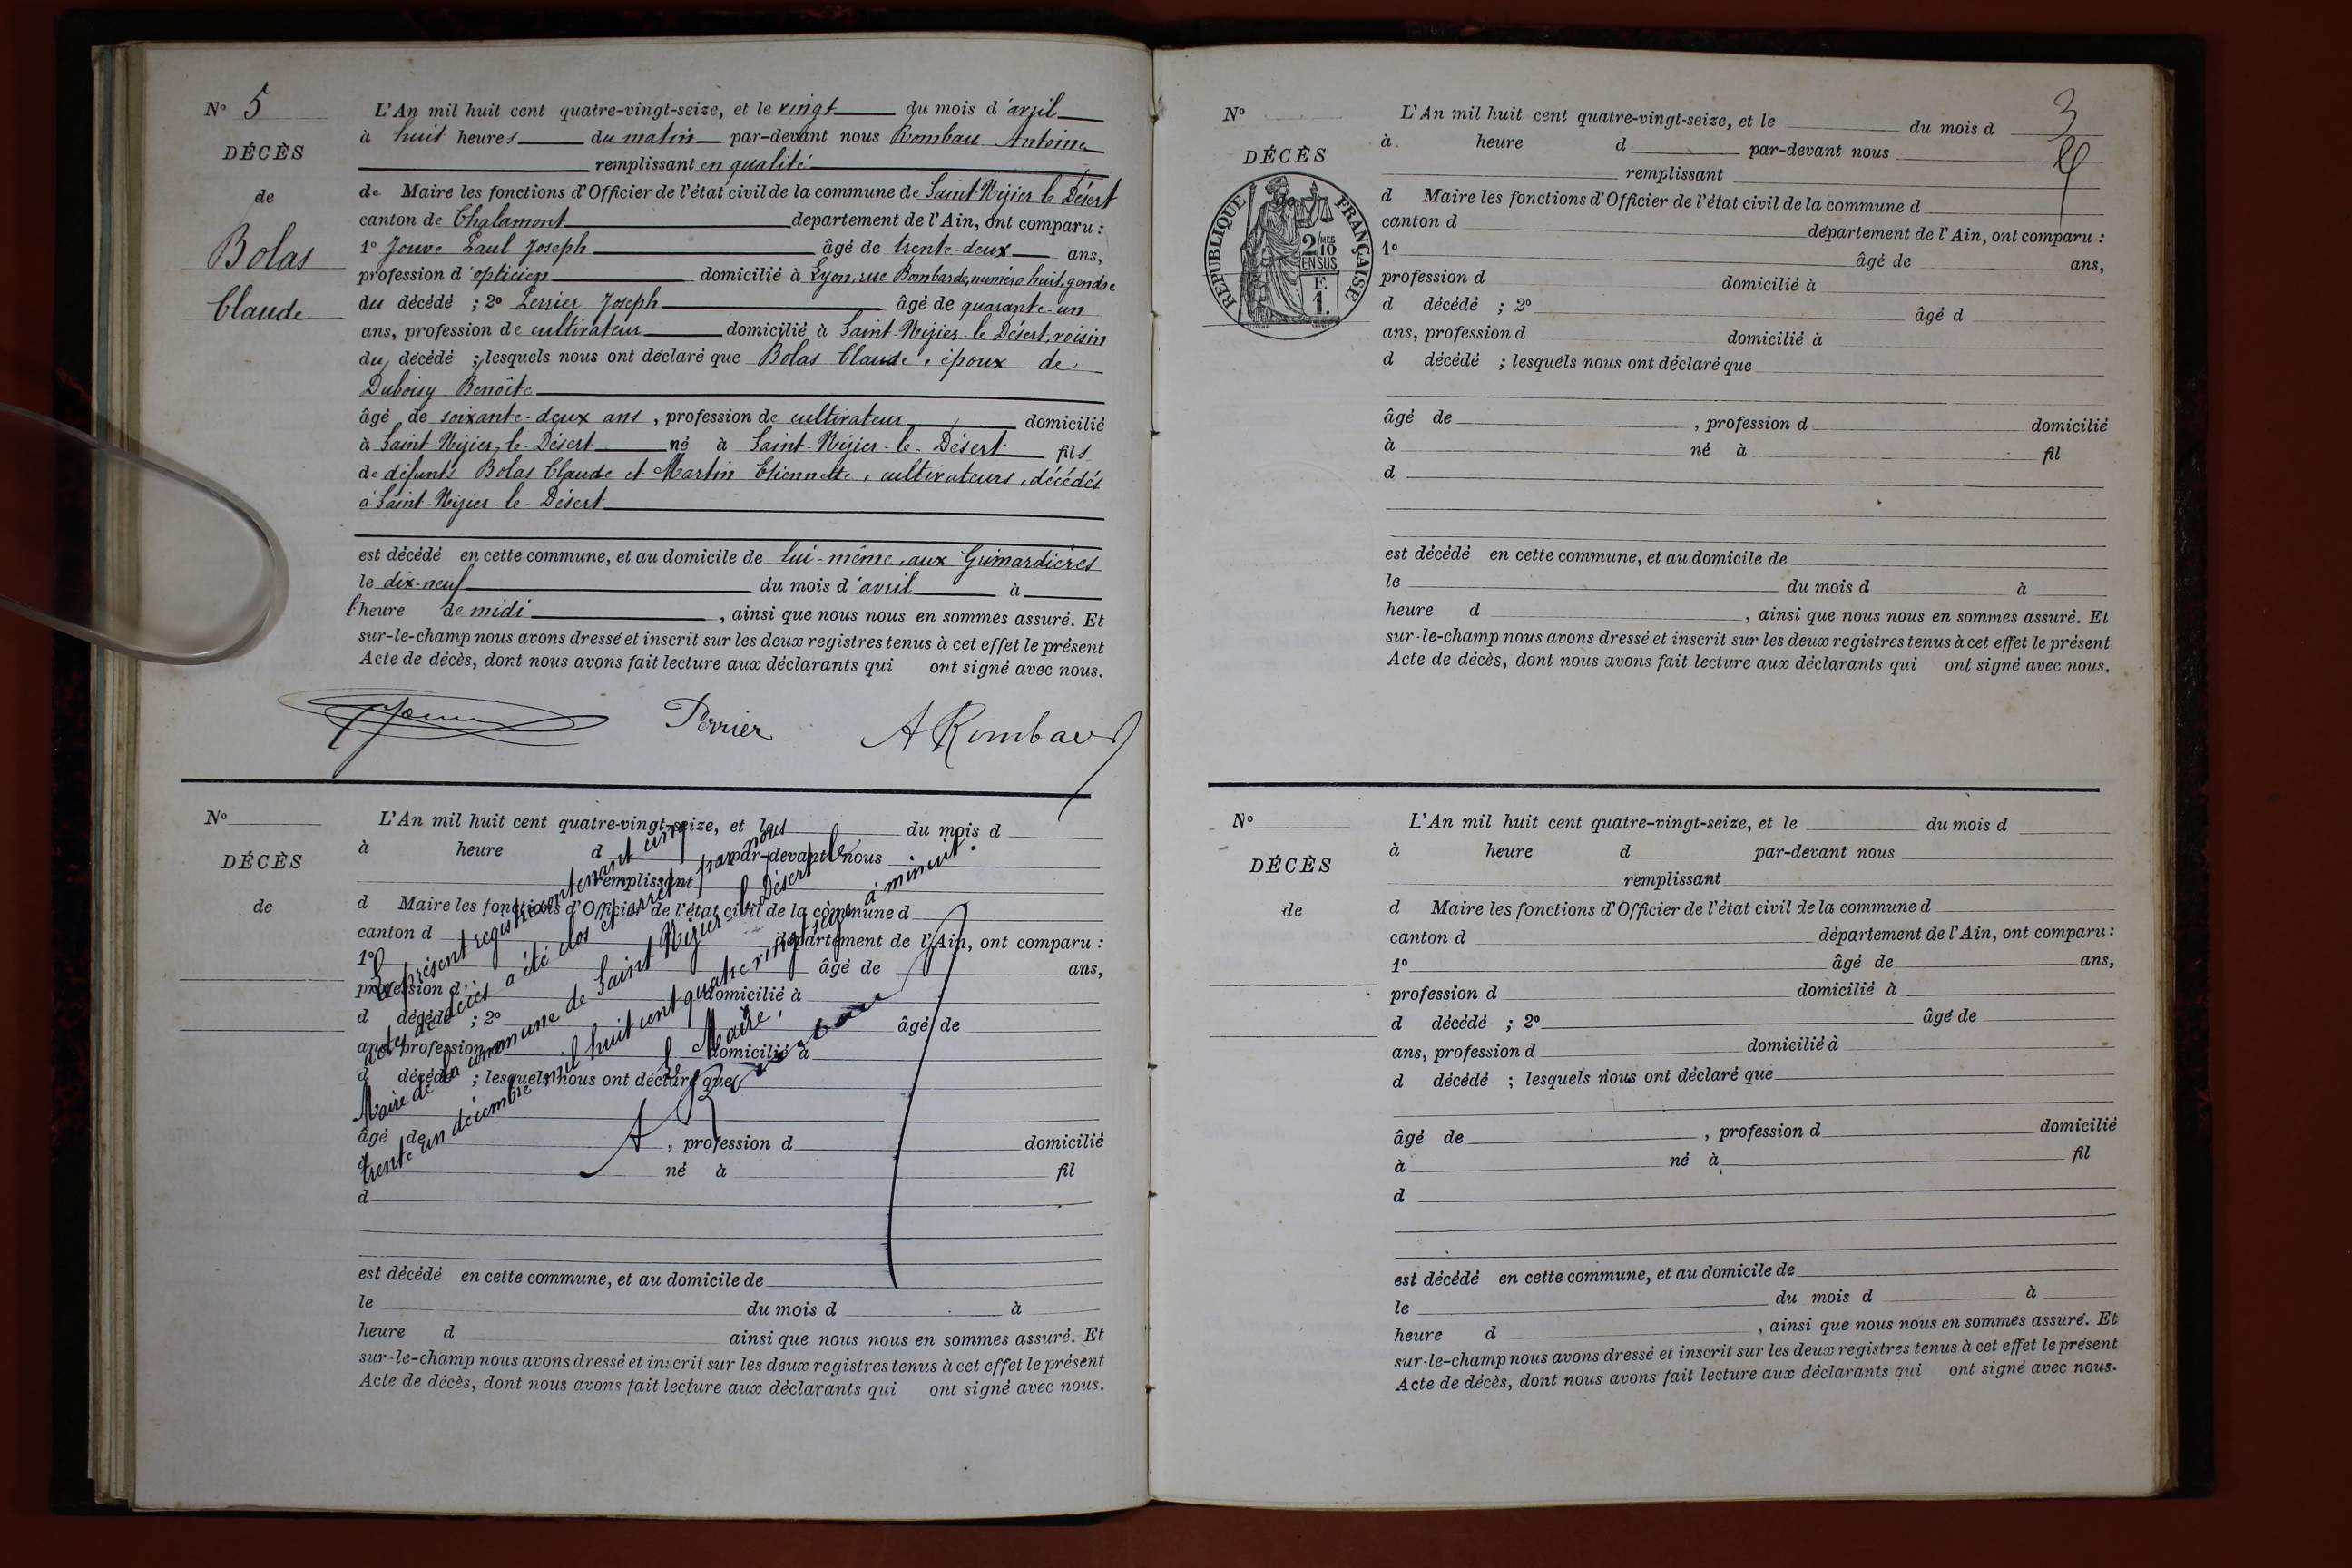 N° 5
DÉCÈS
de
Bolas
Claude
L'An mil huit cent quatre-vingt-seize, et le vingt du mois d'avril
à huit heures du matin par-devant nous Rombau Antoine
remplissant en qualité
de Maire les fonctions d'Officier de l'état civil de la commune de Saint-Nizier le Désert
canton de Chalamont departement de l'Ain, ont comparu :
1° Jouve Paul Joseph âgé de trente-deux ans,
profession d'opticien domicilié à Lyon, rue Bombarde, numéro huit, gendre
du décédé ; 2° Perrier Joseph âgé de quarante-un
ans, profession de cultivateur domicilié à Saint-Nizier-le-Désert, voisin
du décédé ; lesquels nous ont déclaré que Bolas Claude, époux de
Duboisy Benoîte
âgé de soixante-deux ans, profession de cultivateur domicilié
à Saint-Nizier-le-Désert né à Saint-Nizier-le-Désert fils
de défunts Bolas Claude et Martin Etiennette, cultivateurs, décédés
à Saint-Nizier-le-Désert
est décédé en cette commune, et au domicile de lui-même, aux Guimardières
le dix-neuf du mois d'avril à
l'heure de midi, ainsi que nous nous en sommes assuré. Et
sur-le-champ nous avons dressé et inscrit sur les deux registres tenus à cet effet le présent
Acte de décès, dont nous avons fait lecture aux déclarants qui ont signé avec nous.
Jouve Perrier A Rombau
N°
DÉCÈS
de
L'An mil huit cent quatre-vingt-seize, et le du mois d
à heure d par-devant nous
remplissant
d Maire les fonctions d'Officier de l'état civil de la commune d
canton d département de l'Ain, ont comparu :
1° âgé de ans,
profession d domicilié à
d décédé ; 2° âgé de
ans, profession d domicilié à
d décédé ; lesquels nous ont déclaré que
âgé de , profession d domicilié
à né à fil
d
est décédé en cette commune, et au domicile de
le du mois d à
heure d ainsi que nous nous en sommes assuré. Et
sur-le-champ nous avons dressé et inscrit sur les deux registres tenus à cet effet le présent
Acte de décès, dont nous avons fait lecture aux déclarants qui ont signé avec nous.
Le présent registre contenant cinq
actes de décès a été clos et arrêté par nous
Maire de la commune de Saint Nizier le Désert le
trente un décembre mil huit cent quatre vingt seize à minuit.
Le Maire,
A Rombau
3
N°
DÉCÈS
RÉPUBLIQUE FRANÇAISE
2/10 MES
EN SUS
F.
1.
L'An mil huit cent quatre-vingt-seize, et le du mois d
à heure d par-devant nous
remplissant
d Maire les fonctions d'Officier de l'état civil de la commune d
canton d département de l'Ain, ont comparu :
1° âgé de ans,
profession d domicilié à
d décédé ; 2° âgé d
ans, profession d domicilié à
d décédé ; lesquels nous ont déclaré que
âgé de , profession d domicilié
à né à fil
d
est décédé en cette commune, et au domicile de
le du mois d à
heure d , ainsi que nous nous en sommes assuré. Et
sur-le-champ nous avons dressé et inscrit sur les deux registres tenus à cet effet le présent
Acte de décès, dont nous avons fait lecture aux déclarants qui ont signé avec nous.
N°
DÉCÈS
de
L'An mil huit cent quatre-vingt-seize, et le du mois d
à heure d par-devant nous
remplissant
d Maire les fonctions d'Officier de l'état civil de la commune d
canton d département de l'Ain, ont comparu :
1° âgé de ans,
profession d domicilié à
d décédé ; 2° âgé de
ans, profession d domicilié à
d décédé ; lesquels nous ont déclaré que
âgé de , profession d domicilié
à né à fil
d
est décédé en cette commune, et au domicile de
le du mois d à
heure d , ainsi que nous nous en sommes assuré. Et
sur-le-champ nous avons dressé et inscrit sur les deux registres tenus à cet effet le présent
Acte de décès, dont nous avons fait lecture aux déclarants qui ont signé avec nous.